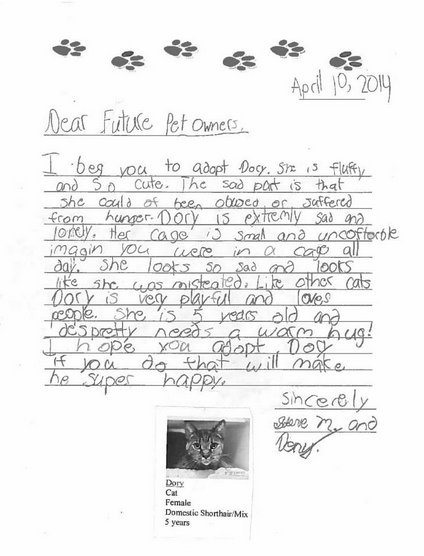 April 10, 2014
Dear Future Pet Owners,
I beg you to adopt Dory. She is fluffy
and so cute. The sad part is that
she could of been abused or suffered
from hunger. Dory is extremly sad and
lonely. Her cage is small and uncoftorble
imagin you were in a cage all
day. She looks so sad and looks
like she was misteated. Like other cats
Dory is very playful and loves
people. She is 5 years old and
despretty needs a warm hug!
I hope you adopt Dory
if you do that will make
he super happy.
Sincerely
M. and
Dory
Dory
Cat
Female
Domestic Shorthair/Mix
5 years